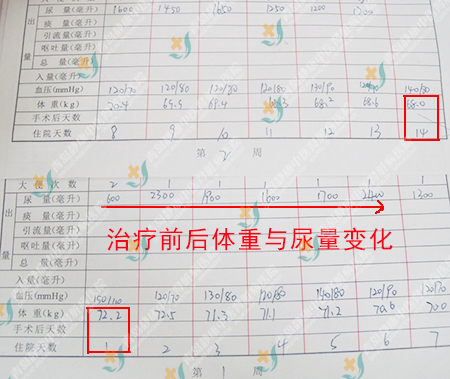 出量
尿 量(毫升) 1600 1450 1650 1250 1200 1300
痰 量(毫升)
引流量(毫升)
呕吐量(毫升)
总 量(毫升)
入量(毫升)
血压(mmHg) 120/70 120/80 120/80 120/80 120/90 140/80
体 重(kg) 70.4 69.5 69.4 68.2 68.6 68.0
手术后天数
住院天数 8 9 10 11 12 13 14
第 2 周
大便次数 2 1 1 1 1 1 1
出量
尿 量(毫升) 600 2300 1960 1600 1700 2400 1300
痰 量(毫升)
引流量(毫升)
呕吐量(毫升)
总 量(毫升)
治疗前后体重与尿量变化
入量(毫升)
血压(mmHg) 120/70 130/80 120/80 140/80 120/90 120/70
体 重(kg) 72.2 72.5 71.3 71.1 71.2 70.6 70.0
手术后天数
住院天数 1 2 3 4 5 6 7
第 1 周